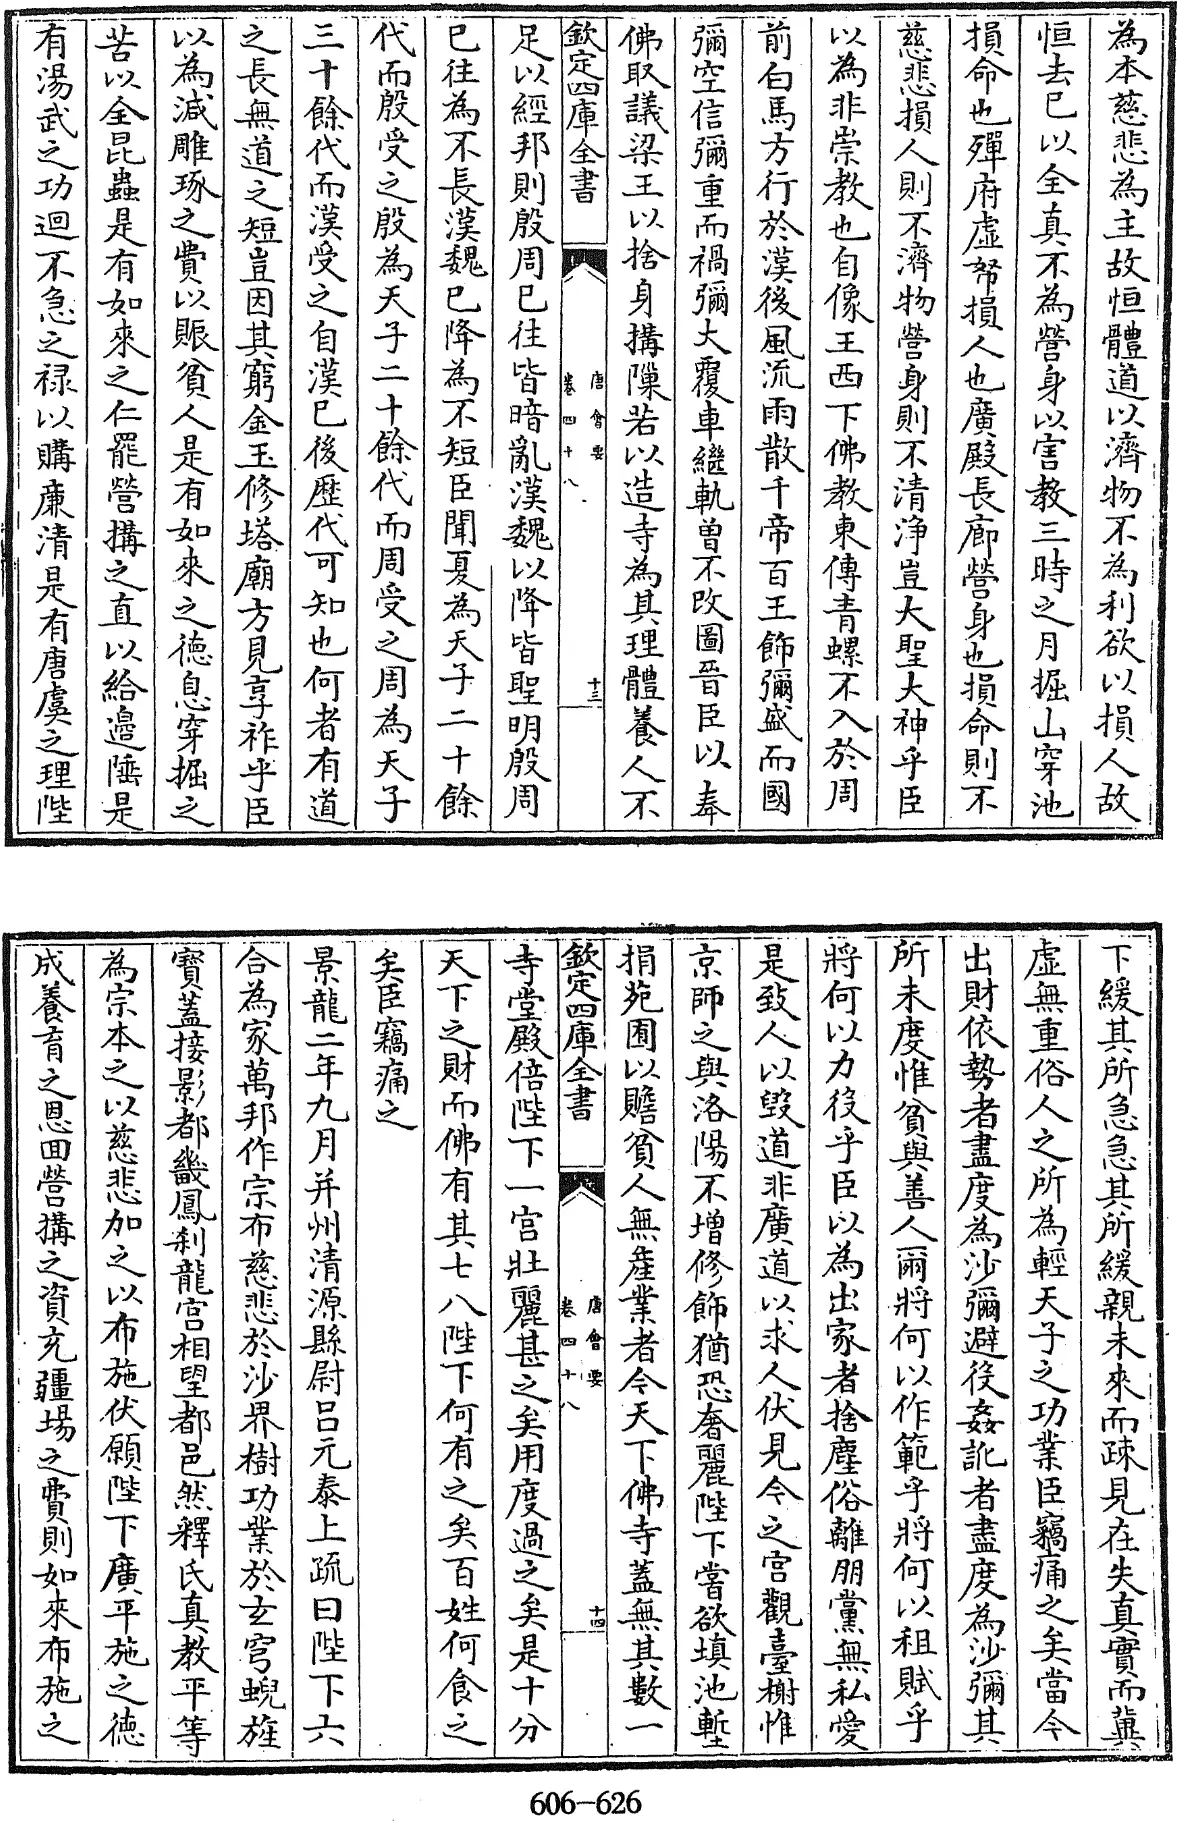 為本慈悲為主故恒體道以濟物不為利欲以損人故
恒去已以全真不為營身以害教三時之月掘山穿池
損命也殫府虛帑損人也廣殿長廊營身也損命則不
慈悲損人則不濟物營身則不清淨豈大聖大神乎臣
以為非崇教也自像王西下佛教東傳青螺不入於周
前白馬方行於漢後風流雨散千帝百王飾彌盛而國
彌空信彌重而禍彌大覆車繼軌曽不改圖晉臣以奉
佛取議梁王以捨身搆隟若以造寺為其理體養人不
欽定四庫全書
唐會要
卷四十八
十三
足以經邦則殷周已往皆暗亂漢魏以降皆聖明殷周
已往為不長漢魏已降為不短臣聞夏為天子二十餘
代而殷受之殷為天子二十餘代而周受之周為天子
三十餘代而漢受之自漢已後歷代可知也何者有道
之長無道之短豈因其窮金玉修塔廟方見享祚乎臣
以為減雕琢之費以賑貧人是有如來之德息穿掘之
苦以全昆蟲是有如來之仁罷營搆之直以給邉陲是
有湯武之功迴不急之禄以購廉清是有唐虞之理陛
下緩其所急急其所緩親未來而疎見在失真實而冀
虛無重俗人之所為輕天子之功業臣竊痛之矣當今
出財依勢者盡度為沙彌避役姦訛者盡度為沙彌其
所未度惟貧與善人爾將何以作範乎將何以租賦乎
將何以力役乎臣以為出家者捨塵俗離朋黨無私愛
是致人以毀道非廣道以求人伏見今之宮觀臺榭惟
京師之與洛陽不增修飾猶恐奢麗陛下嘗欲填池塹
捐苑囿以贍貧人無產業者今天下佛寺蓋無其數一
欽定四庫全書
唐會要
卷四十八
十四
寺堂殿倍陛下一宮壯麗甚之矣用度過之矣是十分
天下之財而佛有其七八陛下何有之矣百姓何食之
矣臣竊痛之
景龍二年九月并州清源縣尉呂元泰上疏曰陛下六
合為家萬邦作宗布慈悲於沙界樹功業於玄穹蜺旌
寳蓋接影都畿鳳刹龍宮相望都邑然釋氏真教平等
為宗本之以慈悲加之以布施伏願陛下廣平施之德
成養育之恩回營搆之資充疆場之費則如來布施之
606-626